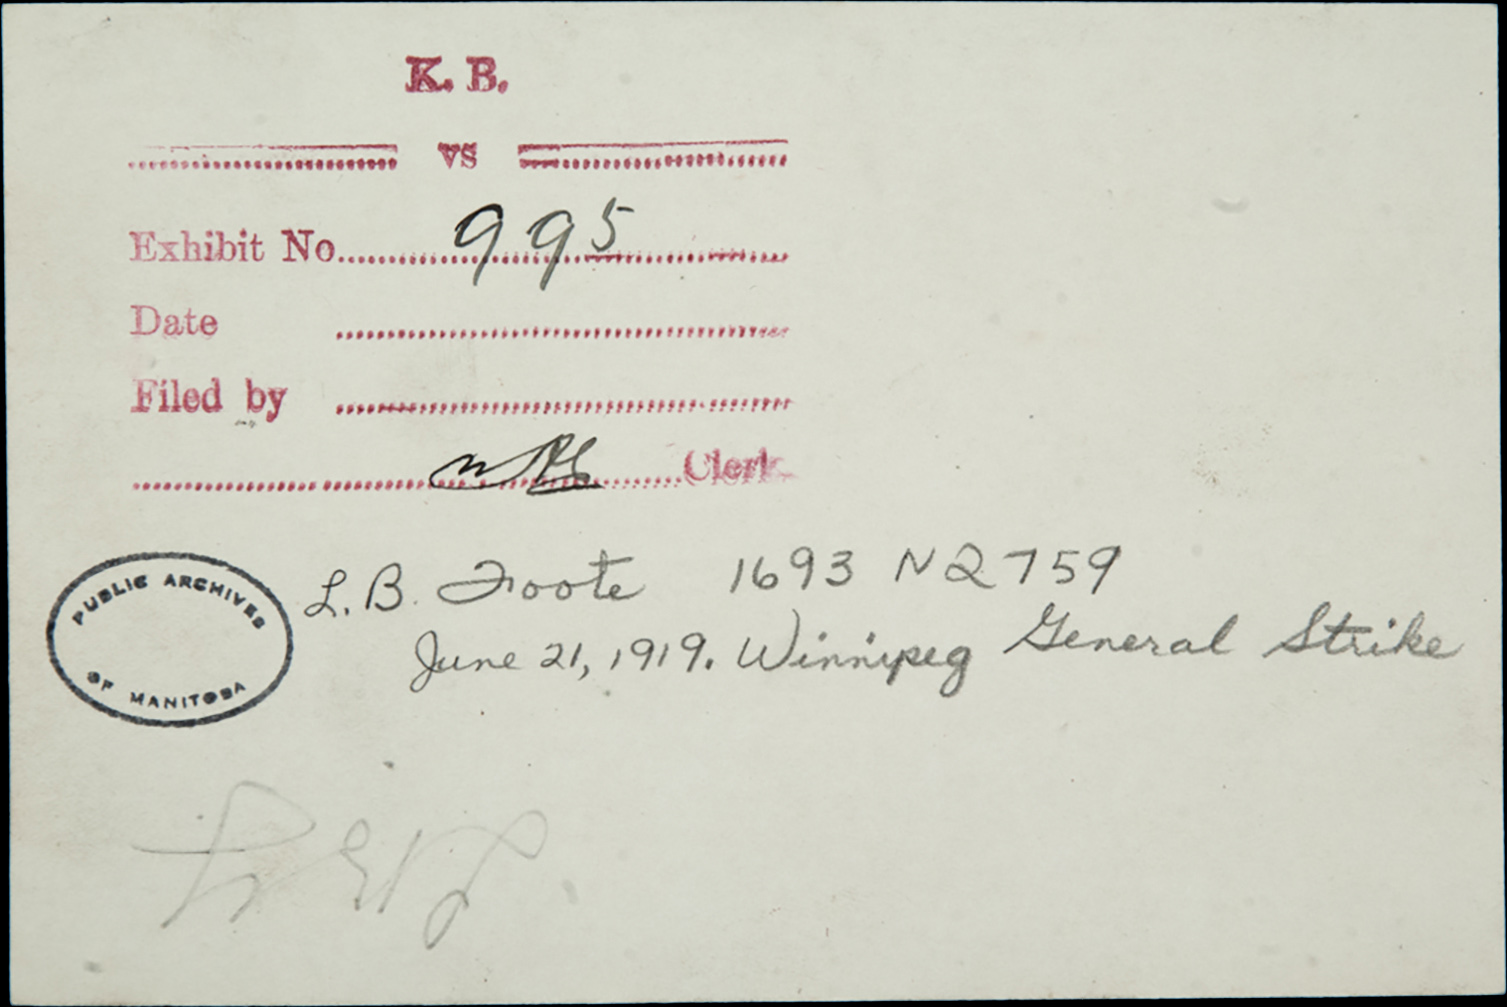 K. B.
vs
Exhibit No. 995
Date
Filed by
Clerk
PUBLIC ARCHIVES
OF MANITOBA
L. B. Foote 1693 N2759
June 21, 1919. Winnipeg General Strike